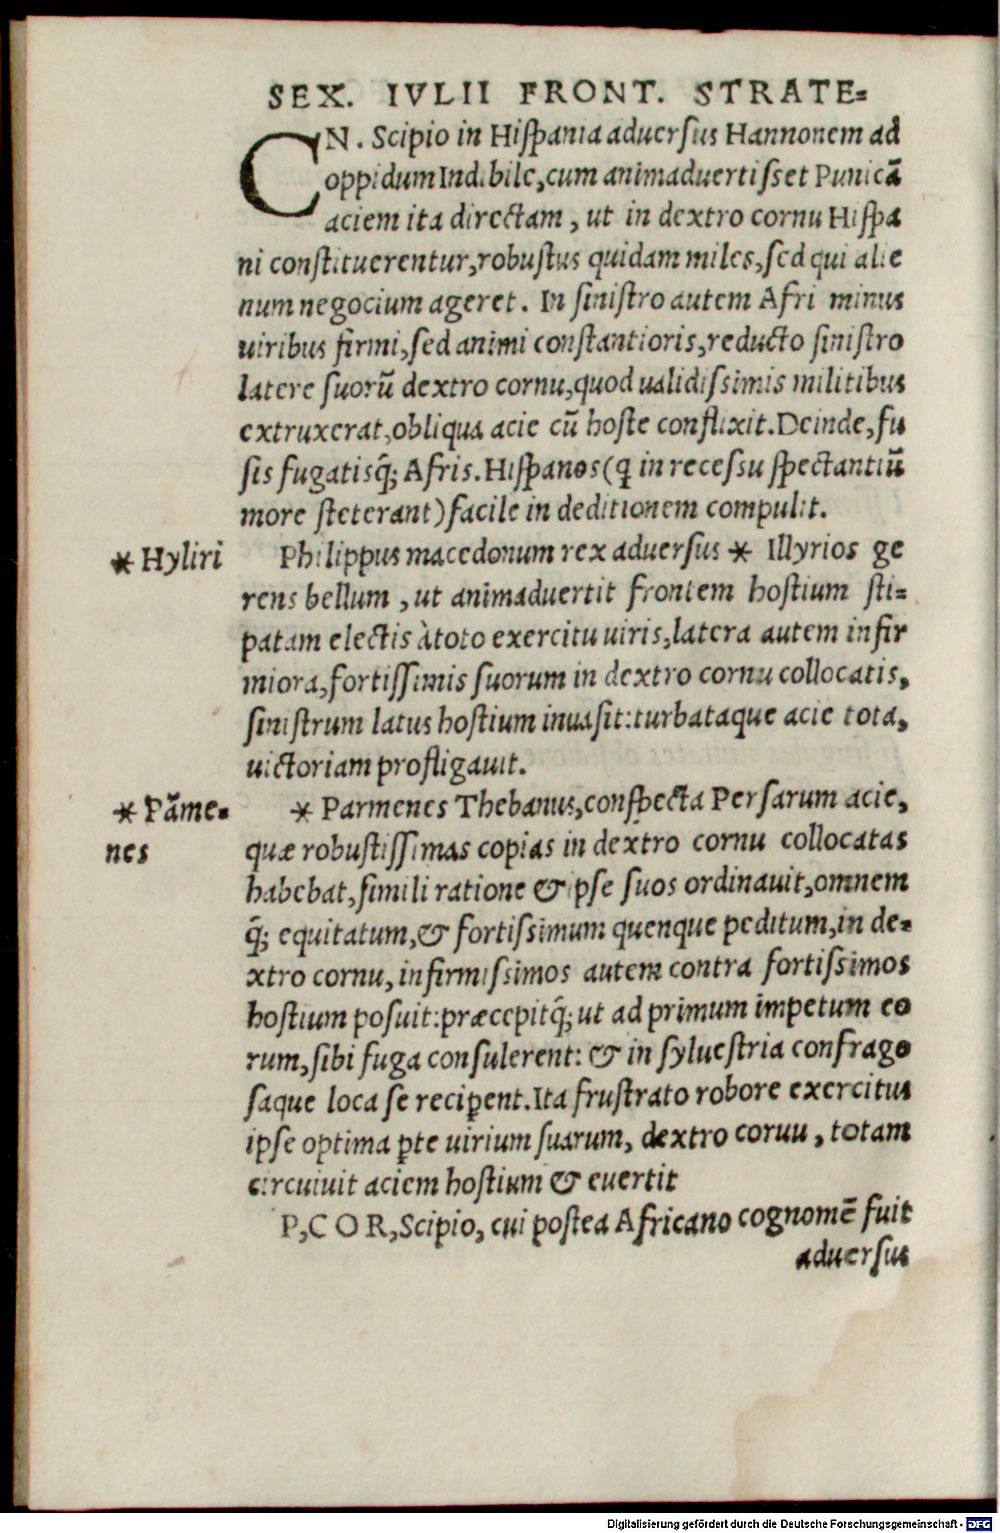 SEX. IVLII FRONT. STRATE=
CN. Scipio in Hiſpania aduerſus Hannonem ad
oppidum Indibile,cum animaduertiſſet Punicā
aciem ita directam, ut in dextro cornu Hiſpa
ni conſtituerentur,robuſtus quidam miles,ſed qui alie
num negocium ageret. In ſiniſtro autem Afri minus
uiribus firmi,ſed animi conſtantioris,reducto ſiniſtro
latere ſuorū dextro cornu,quod ualidiſsimis militibus
extruxerat,obliqua acie cū hoſte conflixit.Deinde,fu
ſis fugatisq̃; Afris.Hiſpanos(q̃ in receſsu ſpectantiū
more ſteterant)facile in deditionem compulit.
* Hyliri
Philippus macedonum rex aduerſus * Illyrios ge
rens bellum ,ut animaduertit frontem hoſtium ſti=
patam electis à toto exercitu uiris,latera autem infir
miora,fortiſſimis ſuorum in dextro cornu collocatis,
ſiniſtrum latus hoſtium inuaſit:turbataque acie tota,
uictoriam profligauit.
* Pāme=
nes
* Parmenes Thebanus,conſpecta Perſarum acie,
quæ robuſtiſſimas copias in dextro cornu collocatas
habebat,ſimili ratione & ipſe ſuos ordinauit,omnem
q̃; equitatum,& fortiſsimum quenque peditum,in de=
xtro cornu,infirmiſsimos autem contra fortiſsimos
hoſtium poſuit:præcepitq̃; ut ad primum impetum eo
rum,ſibi fuga conſulerent: & in ſylueſtria confrago
ſaque loca ſe recip̱ent.Ita fruſtrato robore exercitus
ipſe optima p̱te uirium ſuarum, dextro coruu, totam
circuiuit aciem hoſtium & euertit
P,COR,Scipio, cui poſtea Africano cognomē fuit
aduerſus
Digitalisierung gefördert durch die Deutsche Forschungsgemeinschaft - DFG